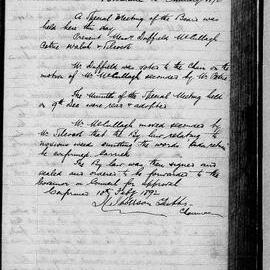 A Special Meeting of the Board was
held here this day
Present Messrs Duffield McCullagh
Walsh &
Mr Duffield was voted to the Chair on the
motion of Mr McCullagh seconded by Mr
The Minutes of the Special Meeting held
on 9th Dec were read & adopted
Mr McCullagh moved seconded by
Mr that the By law relating to
noxious weed omitting the words
be confirmed. Carried
The By law was then signed and
sealed and ordered to be forwarded to the
Governor in Council for approval
Confirmed 10th Feby 1892
Chairman